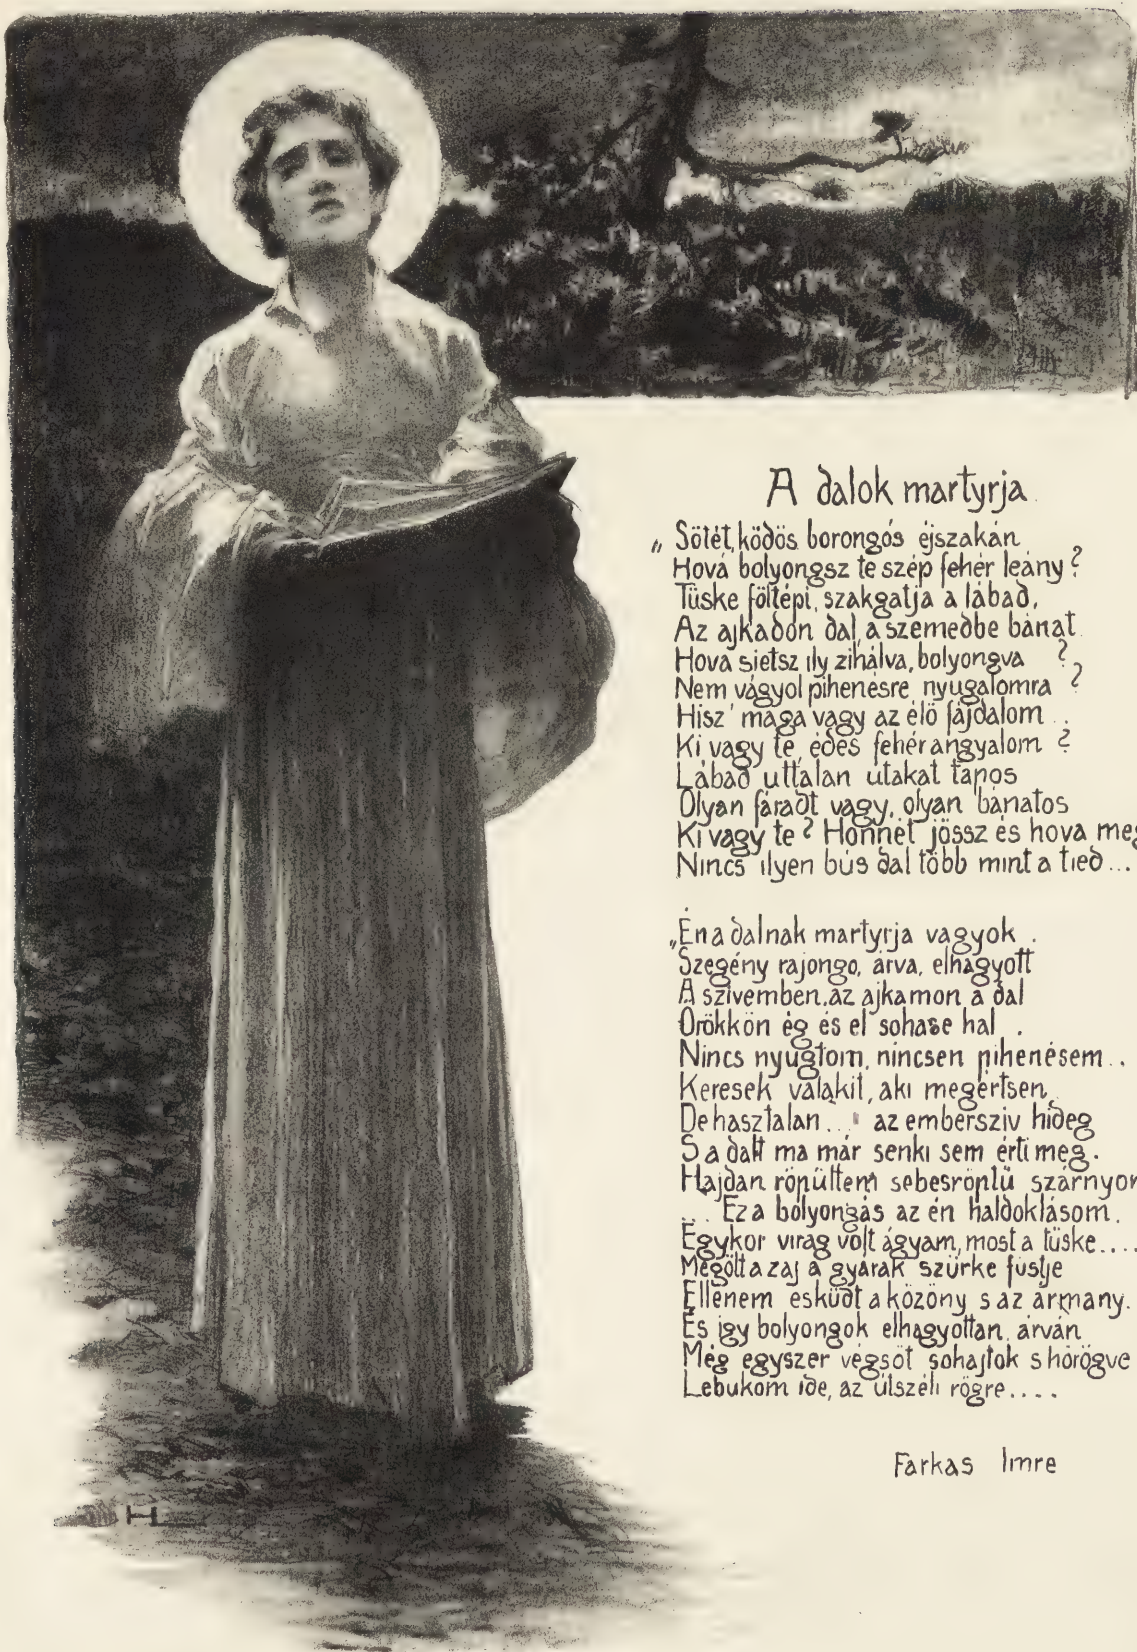 A dalok martyrja
„Sötét, ködös borongós éjszakán
Hová bolyongsz te szép fehér leány?
Tüske föltépi, szakgatja a lábad,
Az ajkadon dal, a szemedbe bánat
Hova sietsz ily zihálva, bolyongva ?
Nem vágyol pihenésre nyugalomra ?
Hisz' maga vagy az élő fájdalom . .
Ki vagy te, édes fehér angyalom ?
Lábad uttalan utakat tapos
Olyan fáradt vagy, olyan bánatos
Ki vagy te? Honnét jössz és hova
Nincs ilyen bús dal több mint a tied...
„Én a dalnak martyrja vagyok .
Szegény rajongo, árva, elhagyott
A szivemben, az ajkamon a dal
Örökkön ég és el sohase hal .
Nincs nyugtom, nincsen pihenésem . .
Keresek valakit, aki megértsen,
De hasztalan... az embersziv hideg
S a dalt ma már senki sem érti meg.
Hajdan röpültem sebesröptü
... Ez a bolyongás az én haldoklásom.
Egykor virág volt ágyam, most a tüske....
Megölt a zaj a gyárak szürke füstje
Ellenem esküdt a közöny s az ármány.
És igy bolyongok elhagyottan, árván
Még egyszer végsőt sohajtok s hörögve
Lebukom ide, az útszéli rögre....
Farkas Imre
H